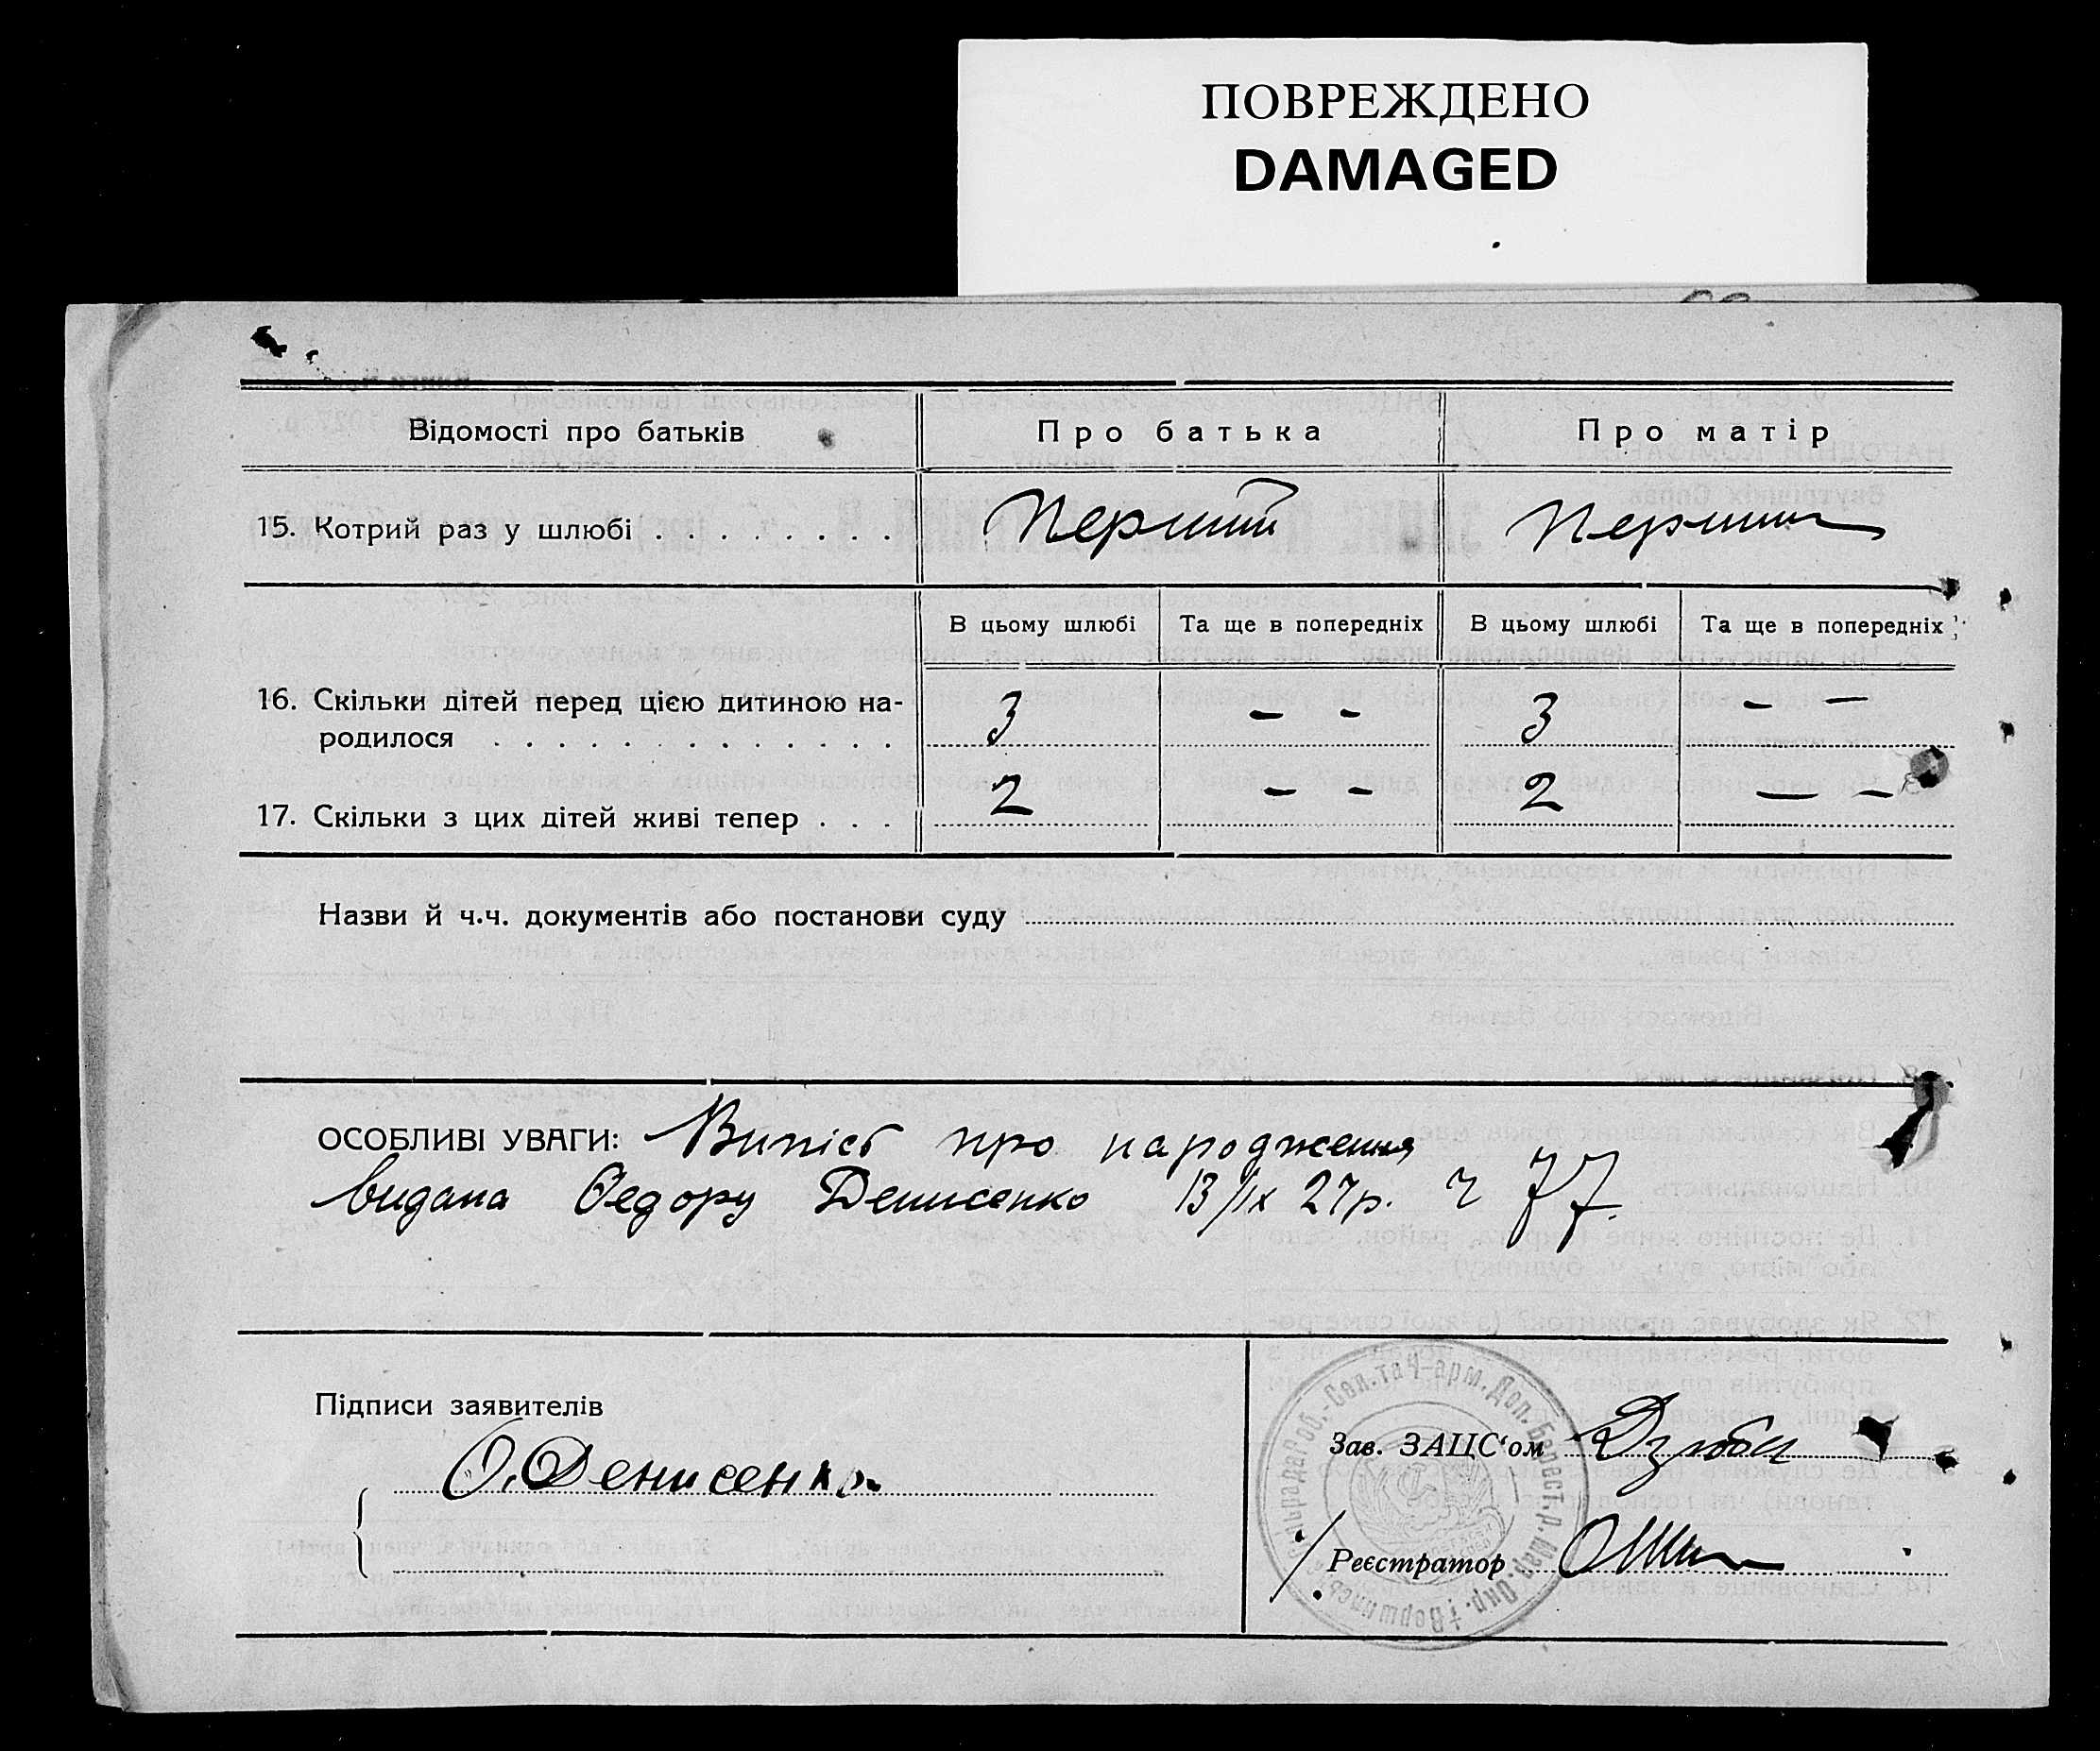 ПОВРЕЖДЕНО
DAMAGED
Відомості про батьків
Про батька
Про матір
15. Котрий раз у шлюбі . . . . . . . .
Перший
Перший
В цьому шлюбі
Та ще в попередніх
В цьому шлюбі
Та ще в попередніх
16. Скільки дітей перед цією дитиною на-
родилося . . . . . . . . . . . . .
3
– –
3
– –
17. Скільки з цих дітей живі тепер . . .
2
– –
2
– –
Назви й ч.ч. документів або постанови суду
ОСОБЛИВІ УВАГИ: Випісь про народження
видана Федору Денисенко 13/IX 27р. ч 77.
Підписи заявителів
Ф. Денисенко
Зав. ЗАЦС‘ом Дзюба
Реєстратор
Роб.-Сел. та Ч-арм. Деп. Берест. р. Мар. Окр.